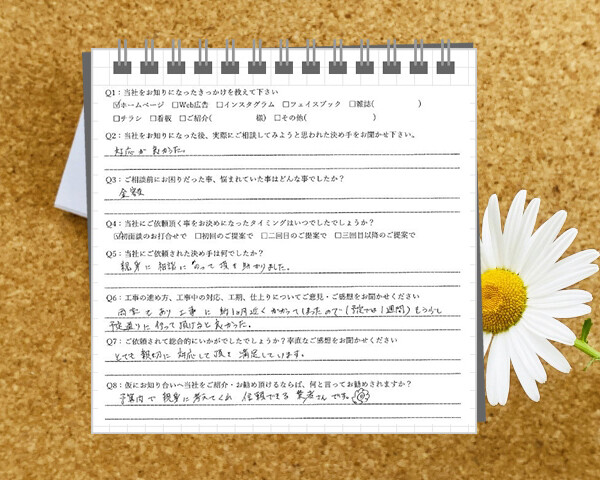 Q1：当社をお知りになったきっかけを教えて下さい
☑ホームページ □Web広告 □インスタグラム □フェイスブック □雑誌( )
□チラシ □看板 □ご紹介( 様) □その他( )
Q2：当社をお知りになった後、実際にご相談してみようと思われた決め手をお聞かせ下さい。
対応が良かった。
Q3：ご相談前にお困りだった事、悩まれていた事はどんな事でしたか？
金額
Q4：当社にご依頼頂く事をお決めになったタイミングはいつでしたでしょうか？
☑初面談のお打合せで □初回のご提案で □二回目のご提案で □三回目以降のご提案で
Q5：当社にご依頼された決め手は何でしたか？
親身に相談にのって頂き助かりました。
Q6：工事の進め方、工事中の対応、工期、仕上りについてご意見・ご感想をお聞かせください
もあり工事に約1ヶ月近くかかってしまったので(予定では1週間)もう少し
予定通りに行って頂けると良かった。
Q7：ご依頼されて総合的にいかがでしたでしょうか？率直なご感想をお聞かせください
とても親切に対応して頂き満足しています。
Q8：仮にお知り合いへ当社をご紹介・お勧め頂けるならば、何と言ってお勧めされますか？
予算内で親身に考えてくれ信頼できる業者さんです。